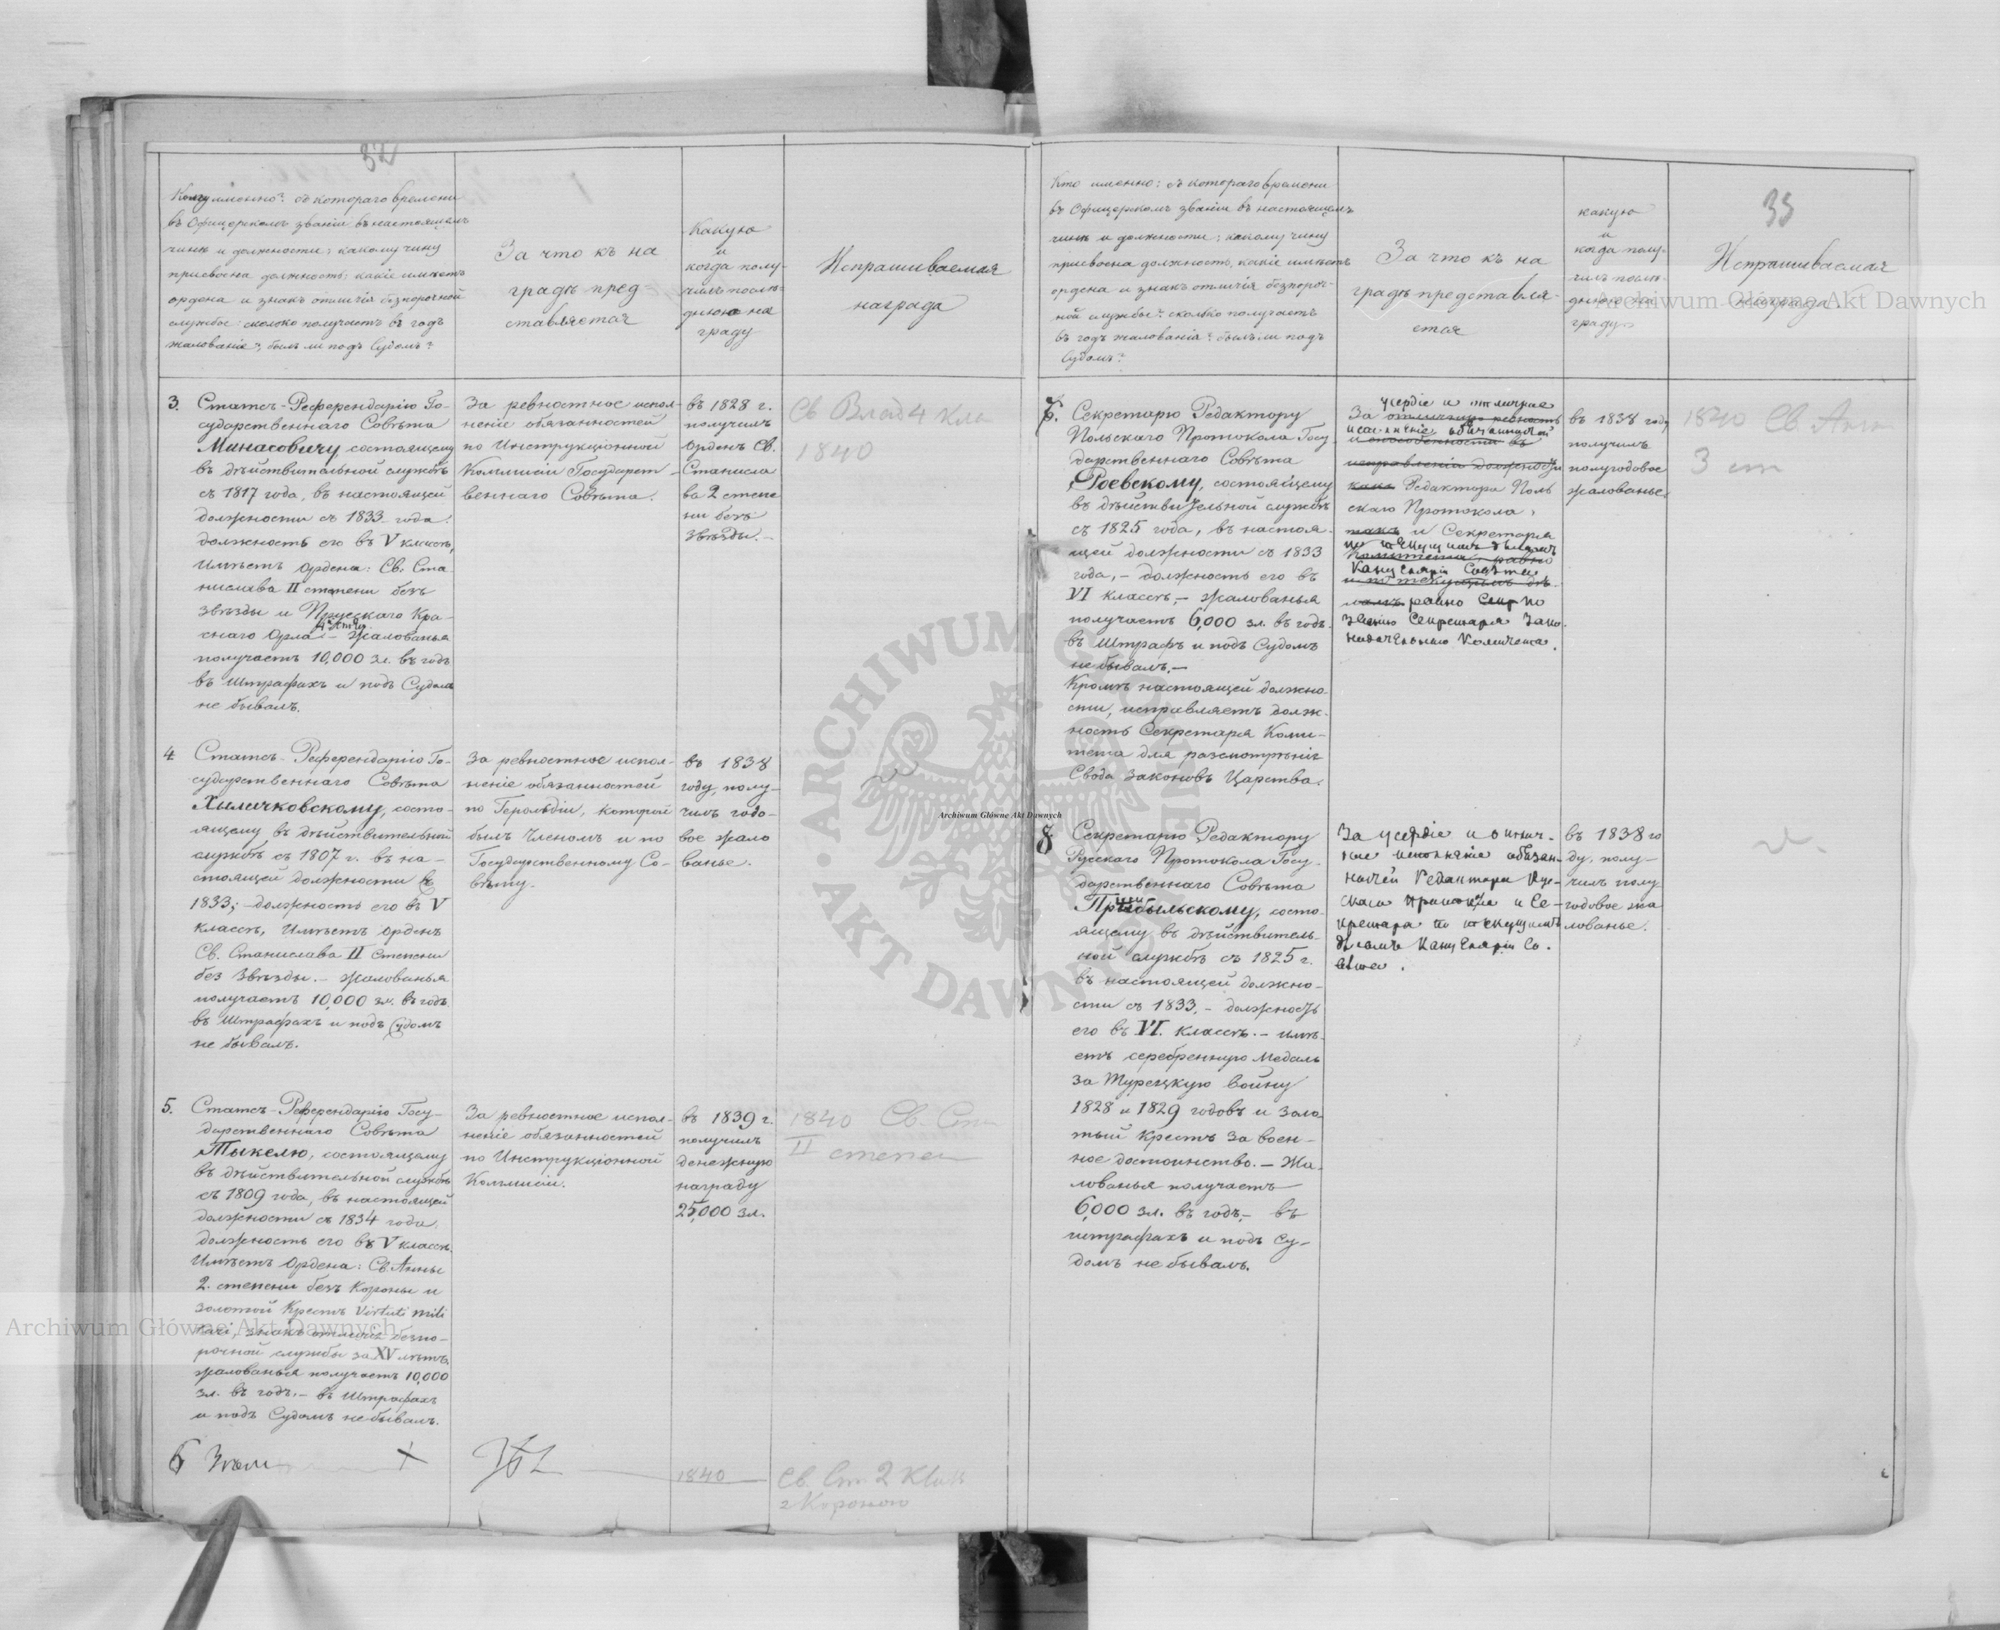 32
Кому именно? съ котораго времени
въ Офицерскомъ званіи въ настоящемъ
чинѣ и должности; какому чину
присвоена должность; какіе имѣетъ
ордена и знакъ отличія безпорочной
службы: сколько получаетъ въ годъ
жалованіе; былъ ли подъ Судомъ?
За что къ на
градѣ пред=
ставляется
Какую
и
когда полу-
чилъ послѣ=
днюю на
граду
Испрашиваемая
награда
3. Статсъ-Референдарію Го-
сударственнаго Совѣта
Минасовичу состоящему
въ дѣйствительной службѣ
съ 1817 года, въ настоящей
должности съ 1833 года.
должность его въ V классѣ,
Имѣетъ Ордена: Св. Ста-
нислава II степени безъ
звѣзды и Прусскаго Кра-
снаго Орла – Жалованья
получаетъ 10,000 зл. въ годъ
въ Штрафахъ и подъ Судомъ
не бывалъ.
За ревностное испол-
неніе обязанностей
по Инструкціонной
Коммисіи Государст-
веннаго Совѣта.
въ 1828 г.
получилъ
Орденъ Св.
Станисла
ва 2 степе
ни безъ
звѣзды. –
Св Влад 4 Кла
1840
4 Статсъ-Референдарію Го-
сударственнаго Совѣта
Хыличковскому, состо-
ящему въ дѣйствительной
службѣ съ 1807 г. въ на-
стоящей должности съ
1833; – должность его въ V
классѣ, Имѣетъ Орденъ
Св. Станислава II степени
без Звѣзды. – Жалованья
получаетъ 10,000 зл. въ годъ
въ Штрафахъ и подъ Судомъ
не бывалъ.
За ревностное испол-
неніе обязанностей
по Герольдіи, которой
былъ Членомъ и по
Государственному Со-
вѣту.
въ 1838
году, полу-
чилъ годо-
вое жало
ванье.
5. Статсъ-Референдарію Госу-
дарственнаго Совѣта
Тыкелю, состоящему
въ дѣйствительной службѣ
съ 1809 года, въ настоящей
должности съ 1834 года,
должность его въ V классѣ.
Имѣетъ Ордена: Св. Анны
2. степени безъ Короны и
золотой Крестъ Virtuti mili
tari, знакъ отличія безпо-
рочной службы за XV лѣтъ,
жалованья получаетъ 10,000
зл. въ годъ. – въ Штрафахъ
и подъ Судомъ не бывалъ.
За ревностное испол-
неніе обязанностей
по Инструкціонной
Коммисіи.
въ 1839 г.
получилъ
денежную
награду
25,000 зл.
1840 Св. Ст
II степен
6
1840
Св. Ст 2 Клас
с Короною
35
Кто именно: съ котораго времени
въ Офицерскомъ званіи въ настоящемъ
чинѣ и должности; какому чину
присвоена должность, какіе имѣетъ
ордена и знакъ отличія безпороч-
ной службы: сколько получаетъ
въ годъ жалованія? былъ ли подъ
Судомъ?
За что къ на
градѣ представля-
ется
какую
и
когда полу-
чилъ послѣ-
днюю на-
граду
Испрашиваемая
награда.
7. Секретарю Редактору
Польскаго Протокола Госу-
дарственнаго Совѣта
Раевскому, состоящему
въ дѣйствительной службѣ
съ 1825 года, въ настоя-
щей должности съ 1833
года, – должность его въ
VI классѣ, – жалованья
получаетъ 6,000 зл. въ годъ
въ Штрафѣ и подъ Судомъ
не бывалъ. –
Кромѣ настоящей должно-
сти, исправляетъ долж-
ность Секретаря Коми-
тета для разсмотрѣнія
Свода Законовъ Царства.
усердіе и отличное
За отличную ревность
исполненіе обязанностей
и способенности въ
исправленіи должности
какъ Редактора Поль
скаго Протокола,
такъ и Секретаря
по текущимъ дѣламъ
Комитета, равно
Канцеляріи Совѣта
и по текущимъ дѣ-
ламъ равно по
званію Секретаря Зако-
нодательнаго Комитета.
въ 1838 году
получилъ
полугодовое
жалованье.
1840 Св. Анн
3 ст
8 Секретарю Редактору
Русскаго Протокола Госу-
дарственнаго Совѣта
Пршибыльскому, состо-
ящему въ дѣйствитель-
ной службѣ съ 1825 г.
въ настоящей должно-
сти съ 1833, – должность
его въ VI. классѣ. – имѣ-
етъ серебренную Медаль
за Турецкую войну
1828 и 1829 годовъ и золо-
тый Крестъ за воен-
ное достоинство. – Жа-
лованья получаетъ
6,000 зл. въ годъ, – въ
штрафахъ и подъ Су-
домъ не бывалъ.
За усердіе и отлич-
ное исполненіе обязан-
ностей Редактора Рус-
скаго Протокола и Се-
кретаря по текущимъ
дѣламъ Канцеляріи Со-
вѣта.
въ 1838 го
ду, полу-
чилъ полу
годовое жа
лованье.
Archiwum Główne Akt Dawnych
Archiwum Główne Akt Dawnych
Archiwum Główne Akt Dawnych
ARCHIWUM GŁÓWNE • AKT DAWNYCH •